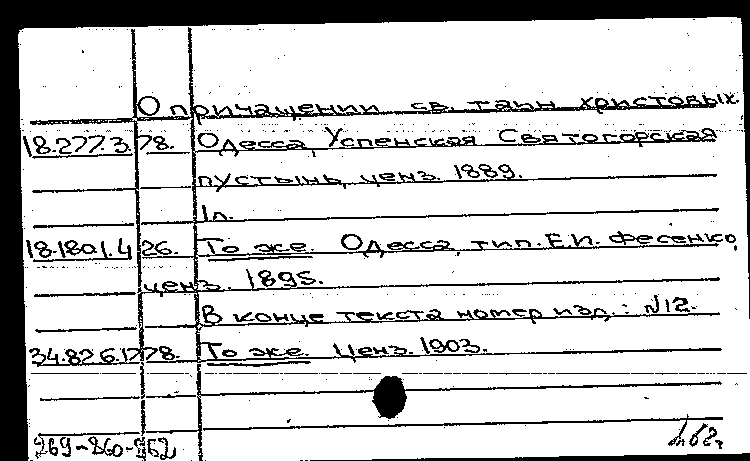 О причащении св. таин христовых
18.277.3.78. Одесса, Успенская Святогорская
пустынь, ценз. 1889.
1л.
18.1801.4.26. То же. Одесса, тип. Е.И. Фесенко,
ценз. 1895.
В конце текста номер изд.: №12.
34.826.1.278. То же. Ценз. 1903.
269-860-862